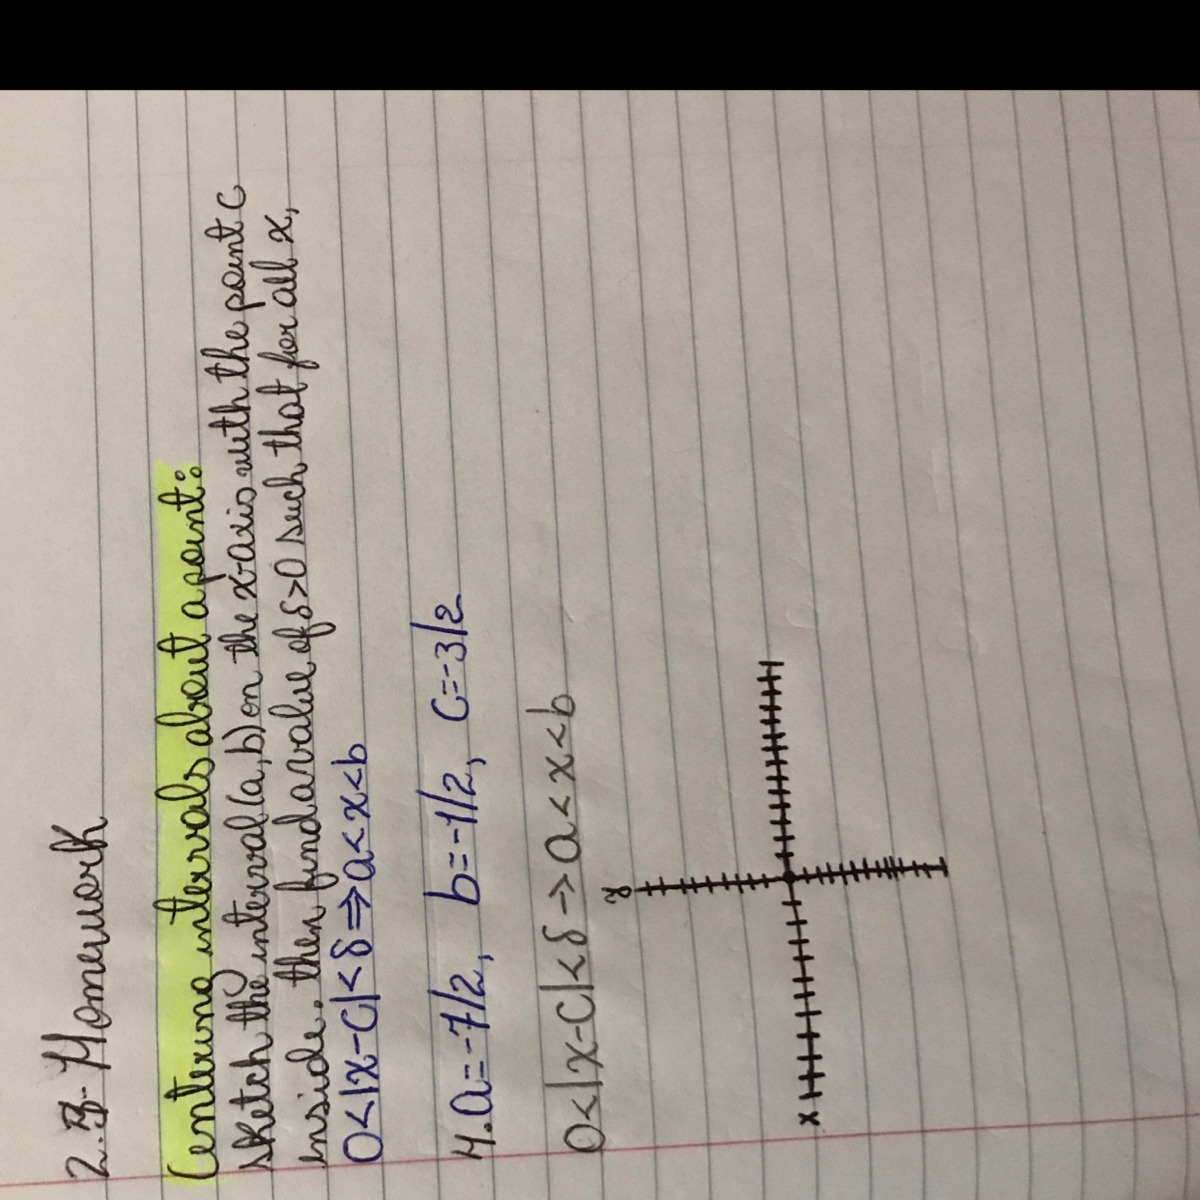 2.3- Homework
Centering intervals about a point:
Sketch the interval (a,b) on the x-axis with the point c
inside. then find a value of δ>0 such that for all x,
0<|x-c|<δ⇒a<x<b
4. a=-7/2, b=-1/2, c=-3/2
0<|x-c|<δ→a<x<b
y
x